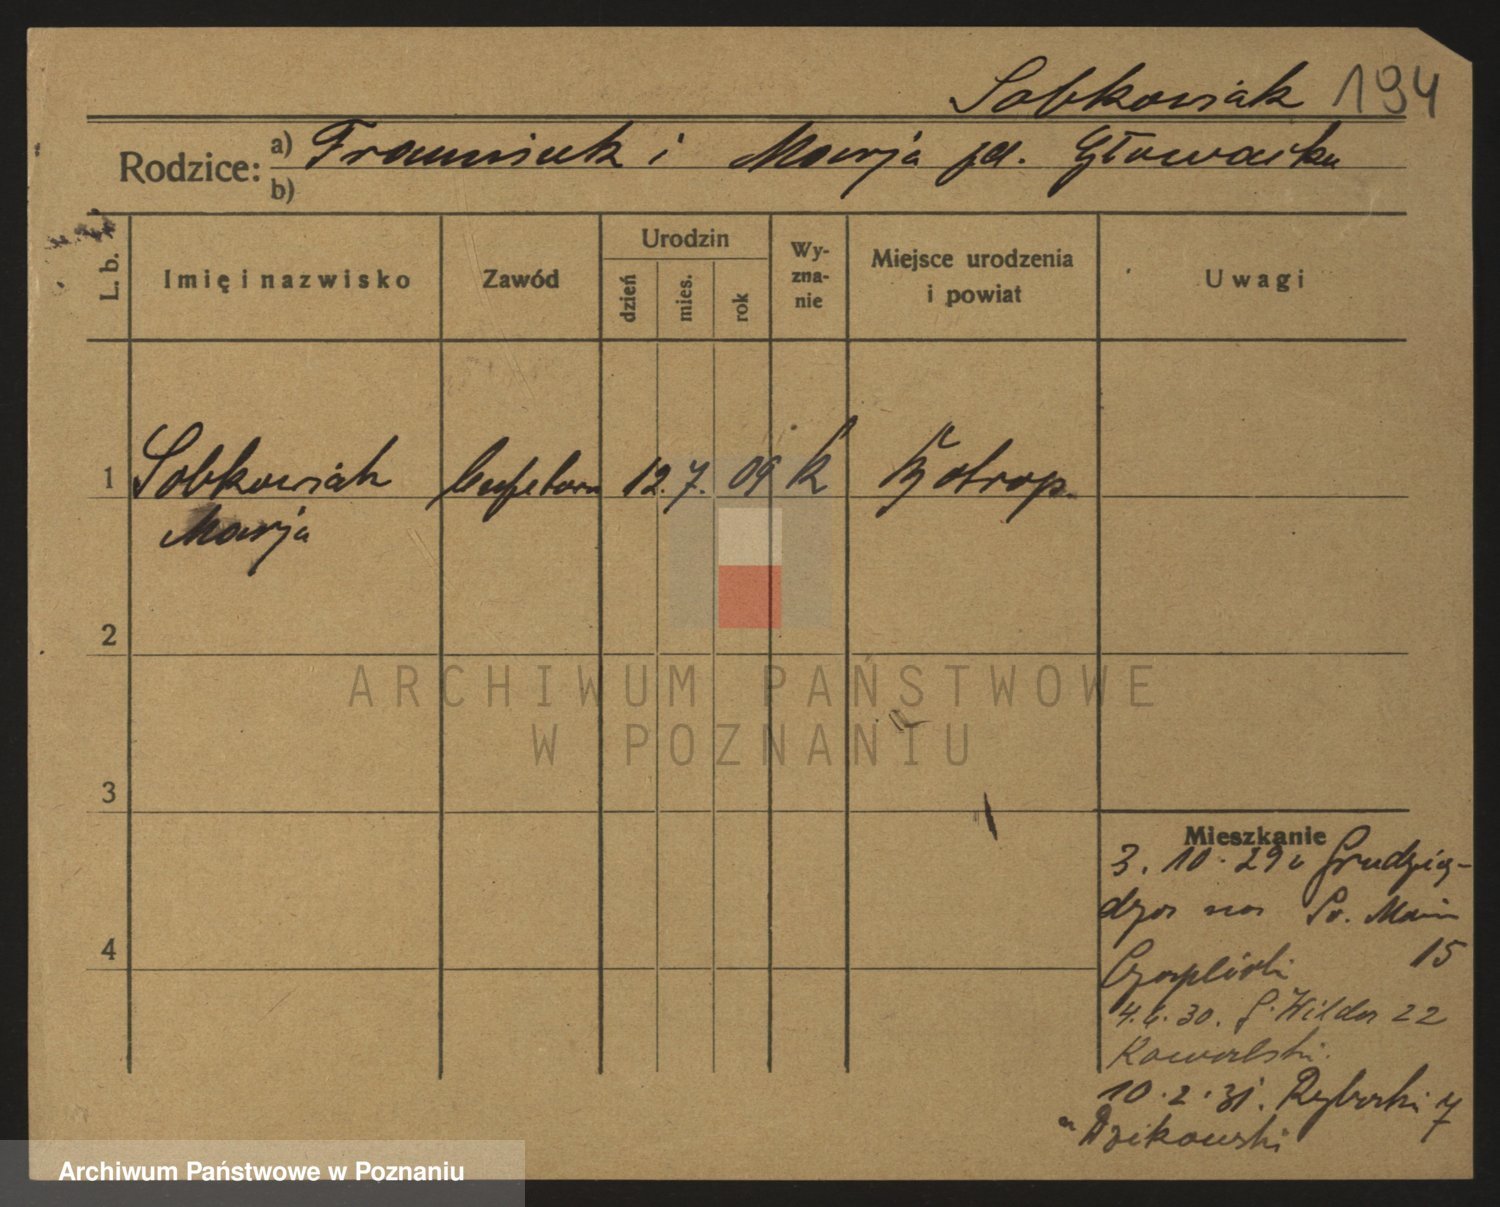 Sobkowiak 194
Rodzice: a) Franciszek i Marja zd. Głowacka
b)
L. b.
Imię i nazwisko
Zawód
Urodzin
dzień
mies.
rok
Wy-
zna-
nie
Miejsce urodzenia
i powiat
Uwagi
1 Sobkowiak 12. 7. 09 k
Marja
2
3
4
Mieszkanie
3. 10. 29 Grudzią-
dza na Św. Marcin
15
4. 6. 30. G. Wilda 22
Kowalski.
10. 2. 31. Rybaki 7
Dzikowski
ARCHIWUM PAŃSTWOWE
W POZNANIU
Archiwum Państwowe w Poznaniu